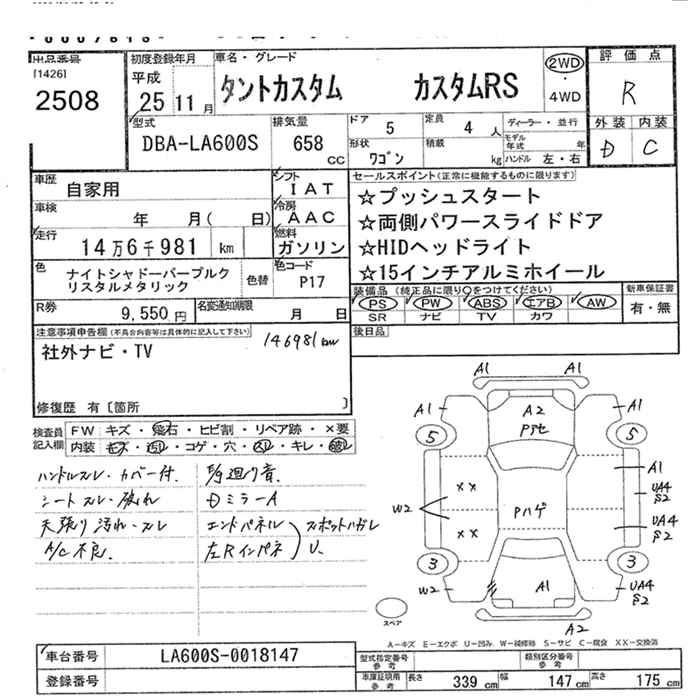 出品番号
[1426]
2508
初度登録年月
平成
25 11 月
車名・グレード
タントカスタム カスタムRS
2WD
・
4WD
評価点
R
外装 内装
D C
型式
DBA-LA600S
排気量
658
cc
ドア
5
定員
4 人
形状
ワゴン
積載
kg
ディーラー・並行
モデル年式 年
ハンドル 左・右
車歴
自家用
シフト
IAT
車検
年 月( 日)
冷房
AAC
走行
14万6千981 km
燃料
ガソリン
色
ナイトシャドーパープルク
リスタルメタリック
色替
色コード
P17
R券
9,550 円
名変通知期限
月 日
セールスポイント(正常に機能するものに限ります)
☆プッシュスタート
☆両側パワースライドドア
☆HIDヘッドライト
☆15インチアルミホイール
装備品 (純正品に限り○をつけてください)
PS PW ABS エアB AW
SR ナビ TV カワ
新車保証書
有・無
後日品
注意事項申告欄(不具合内容等は具体的に記入して下さい)
社外ナビ・TV
146981km
修復歴 有〔箇所 〕
検査員
記入欄
FW キズ・飛石・ヒビ割・リペア跡・×要
内装 キズ・汚れ・コゲ・穴・スレ・キレ・破レ
ハンドルスレ・カバー付.
シートスレ・破れ
天張り汚れ・スレ
A/C不良.
F/g廻り音
DミラーA
エンドパネル
左Rインパネ
スポットハガレ
U.
A1 A1
A1 A2 A1
Pアセ
5 5
A1
×× UA4
S2
W2 Pハゲ
×× UA4
S2
3 3
W2 A1 UA4
S2
A2
スペア
A−キズ E−エクボ U−凹み W−補修跡 S−サビ C−腐食 XX−交換済
車台番号
LA600S-0018147
登録番号
型式指定番号
参考
類別区分番号
参考
車庫証明用
参考
長さ 339 cm 幅 147 cm 高さ 175 cm